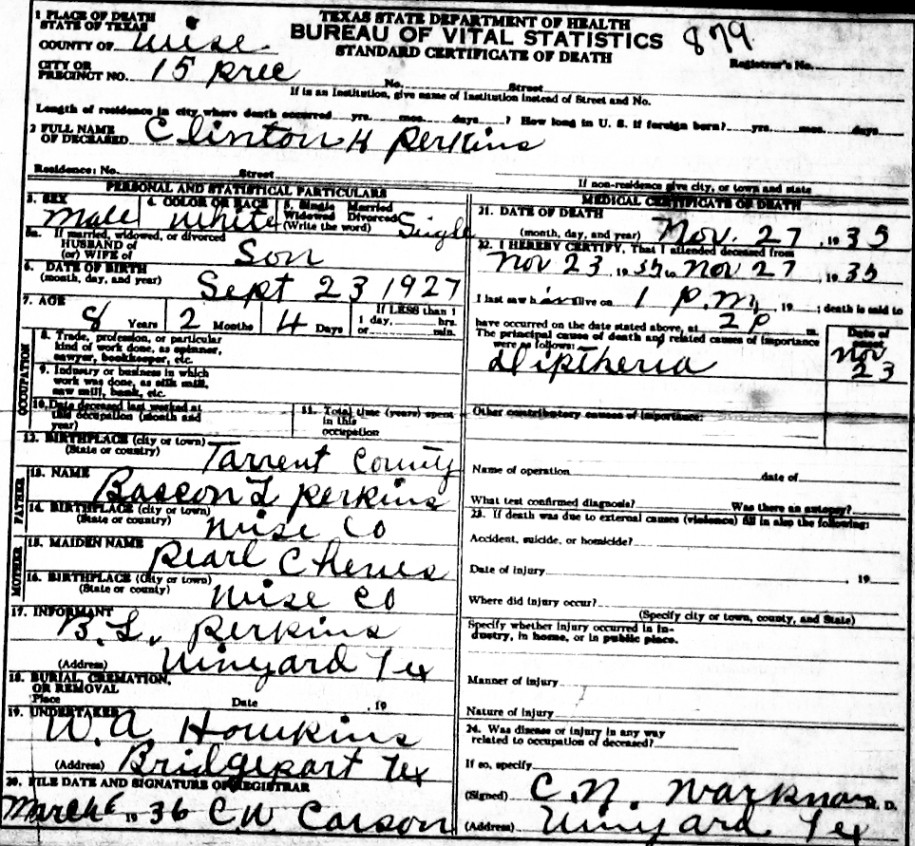 TEXAS STATE DEPARTMENT OF HEALTH
BUREAU OF VITAL STATISTICS
STANDARD CERTIFICATE OF DEATH
879
Registrar's No.
1 PLACE OF DEATH
STATE OF TEXAS
COUNTY OF Wise
CITY OR
PRECINCT NO. 15 Prec
No. Street
If in an Institution, give name of Institution instead of Street and No.
Length of residence in city where death occurred yrs. mos. days ? How long in U. S. if foreign born? yrs. mos. days
2 FULL NAME
OF DECEASED Clinton H Perkins
Residence: No. Street
If non-residence give city, or town and state
PERSONAL AND STATISTICAL PARTICULARS
3. SEX Male
4. COLOR OR RACE White
5. Single Married
Widowed Divorced
(Write the word) Single
5a. If married, widowed, or divorced
HUSBAND of
(or) WIFE of Son
6. DATE OF BIRTH
(month, day, and year) Sept 23 1927
7. AGE
8 Years 2 Months 4 Days
If LESS than 1
1 day, hrs.
or min.
OCCUPATION
8. Trade, profession, or particular
kind of work done, as spinner,
sawyer, bookkeeper, etc.
9. Industry or business in which
work was done, as silk mill,
saw mill, bank, etc.
10. Date deceased last worked at
this occupation (month and
year)
11. Total time (years) spent
in this
occupation
12. BIRTHPLACE (city or town)
(State or country) Tarrent County
FATHER
13. NAME Bascon L Perkins
14. BIRTHPLACE (city or town)
(State or country) Wise Co
MOTHER
15. MAIDEN NAME Pearl
16. BIRTHPLACE (City or town)
(State or country) Wise Co
17. INFORMANT B. L. Perkins
(Address) Vinyard Tex
18. BURIAL, CREMATION,
OR REMOVAL
Place Date , 19
19. UNDERTAKER W. A Hawkins
(Address) Bridgeport Tex
20. FILE DATE AND SIGNATURE OF REGISTRAR
March 6 19 36 C W Carson
MEDICAL CERTIFICATE OF DEATH
21. DATE OF DEATH
(month, day, and year) Nov. 27 , 19 35
22. I HEREBY CERTIFY, That I attended deceased from
Nov 23 , 19 35 to Nov 27 , 19 35
I last saw him alive on 1 P.m. , 19 ; death is said to
have occurred on the date stated above, at 2 P m.
The principal cause of death and related causes of importance
were as follows:
Diptheria
Date of
onset
Nov
23
Other contributory causes of importance:
Name of operation date of
What test confirmed diagnosis? Was there an autopsy?
23. If death was due to external causes (violence) fill in also the following:
Accident, suicide, or homicide?
Date of injury , 19
Where did injury occur?
(Specify city or town, county, and State)
Specify whether injury occurred in in-
dustry, in home, or in public place.
Manner of injury
Nature of injury
24. Was disease or injury in any way
related to occupation of deceased?
If so, specify
(Signed) C. N. D.
(Address) Vinyard Tex